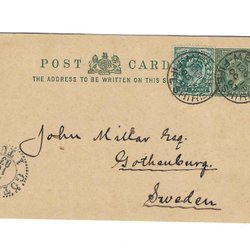 POST CARD
THE ADDRESS TO BE WRITTEN ON THIS S
John Millar Esq.
Gothenburg.
Sweden